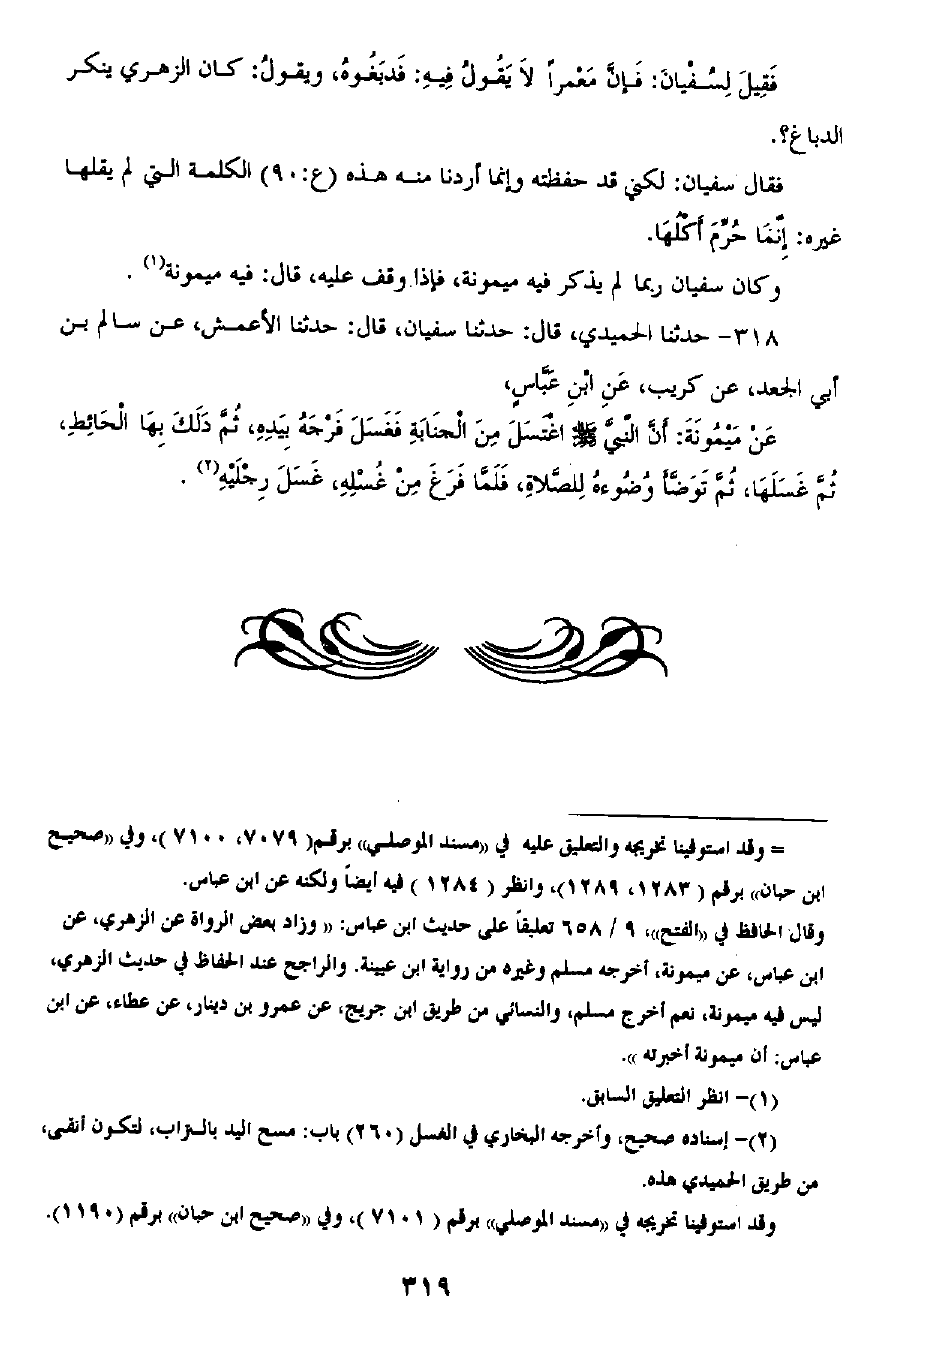 فَقِيلَ لِسُفْيانَ: فَإِنَّ مَعْمراً لاَ يَقُولُ فِيهِ: فَدبَغُوهُ، ويقولُ: كان الزهري ينكر
الدباغ؟.
فقال سفيان: لكني قد حفظته وإنما أردنا منه هذه (ع:٩٠) الكلمة التي لم يقلها
غيره: إِنَّمَا حُرِّمَ أَكْلُهَا.
وكان سفيان ربما لم يذكر فيه ميمونة، فإذا وقف عليه، قال: فيه ميمونة(١).
٣١٨- حدثنا الحميدي، قال: حدثنا سفيان، قال: حدثنا الأعمش، عن سالم بن
أبي الجعد، عن كريب، عَنِ ابْنِ عَبَّاسٍ،
عَنْ مَيْمُونَةَ: أَنَّ النَّبِيَّ ﷺ اغْتَسَلَ مِنَ الْجَنَابَةِ فَغَسَلَ فَرْجَهُ بِيَدِهِ، ثُمَّ دَلَكَ بِهَا الْحَائِطَ،
ثُمَّ غَسَلَهَا، ثُمَّ تَوَضَّأَ وُضُوءهُ لِلصَّلاَةِ، فَلَمَّا فَرَغَ مِنْ غُسْلِهِ، غَسَلَ رِجْلَيْهِ(٢).
= وقد استوفينا تخريجه والتعليق عليه في «مسند الموصلي» برقم( ٧٠٧٩، ٧١٠٠ )، وفي «صحيح
ابن حبان» برقم ( ١٢٨٣، ١٢٨٩)، وانظر ( ١٢٨٤ ) فيه أيضاً ولكنه عن ابن عباس.
وقال الحافظ في «الفتح»، ٩ / ٦٥٨ تعليقاً على حديث ابن عباس: « وزاد بعض الرواة عن الزهري، عن
ابن عباس، عن ميمونة، أخرجه مسلم وغيره من رواية ابن عيينة. والراجح عند الحفاظ في حديث الزهري،
ليس فيه ميمونة، نعم أخرج مسلم، والنسائي من طريق ابن جريج، عن عمرو بن دينار، عن عطاء، عن ابن
عباس: أن ميمونة أخبرته ».
(١)- انظر التعليق السابق.
(٢)- إسناده صحيح، وأخرجه البخاري في الغسل (٢٦٠) باب: مسح اليد بالتراب، لتكون أنقى،
من طريق الحميدي هذه.
وقد استوفينا تخريجه في «مسند الموصلي» برقم ( ٧١٠١ )، وفي «صحيح ابن حبان» برقم (١١٩٠).
٣١٩